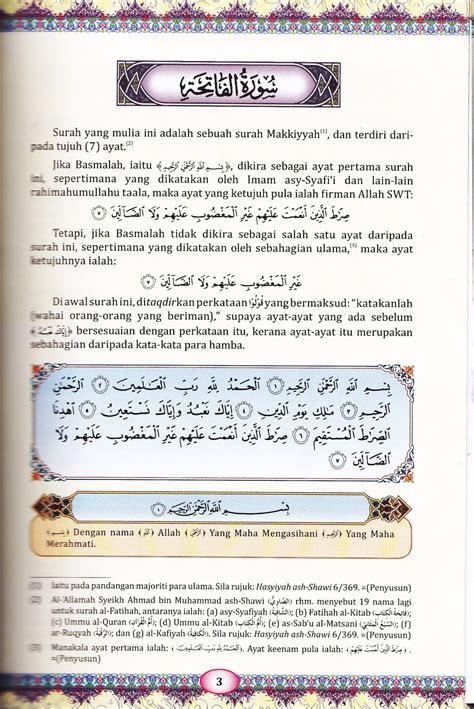 سُورَةُ الفَاتِحَةِ
Surah yang mulia ini adalah sebuah surah Makkiyyah(1), dan terdiri dari-
pada tujuh (7) ayat.(2)
Jika Basmalah, iaitu ﴿بِسْمِ اللَّهِ الرَّحْمَٰنِ الرَّحِيمِ﴾, dikira sebagai ayat pertama surah
ini, sepertimana yang dikatakan oleh Imam asy-Syafi'i dan lain-lain
rahimahumullahu taala, maka ayat yang ketujuh pula ialah firman Allah SWT:
صِرَاطَ الَّذِينَ أَنْعَمْتَ عَلَيْهِمْ غَيْرِ الْمَغْضُوبِ عَلَيْهِمْ وَلَا الضَّالِّينَ ٧
Tetapi, jika Basmalah tidak dikira sebagai salah satu ayat daripada
surah ini, sepertimana yang dikatakan oleh sebahagian ulama,(3) maka ayat
ketujuhnya ialah:
غَيْرِ الْمَغْضُوبِ عَلَيْهِمْ وَلَا الضَّالِّينَ ٧
Di awal surah ini, ditaqdirkan perkataan قُوْلُوْا yang bermaksud: "katakanlah
(wahai orang-orang yang beriman)," supaya ayat-ayat yang ada sebelum
﴿إِيَّاكَ نَعْبُدُ﴾ bersesuaian dengan perkataan itu, kerana ayat-ayat itu merupakan
sebahagian daripada kata-kata para hamba.
بِسْمِ اللَّهِ الرَّحْمَٰنِ الرَّحِيمِ ١ الْحَمْدُ لِلَّهِ رَبِّ الْعَالَمِينَ ٢ الرَّحْمَٰنِ
الرَّحِيمِ ٣ مَالِكِ يَوْمِ الدِّينِ ٤ إِيَّاكَ نَعْبُدُ وَإِيَّاكَ نَسْتَعِينُ ٥ اهْدِنَا
الصِّرَاطَ الْمُسْتَقِيمَ ٦ صِرَاطَ الَّذِينَ أَنْعَمْتَ عَلَيْهِمْ غَيْرِ الْمَغْضُوبِ عَلَيْهِمْ وَلَا
الضَّالِّينَ ٧
بِسْمِ اللَّهِ الرَّحْمَٰنِ الرَّحِيمِ ١
﴿بِسْمِ﴾ Dengan nama ﴿اللَّهِ﴾ Allah ﴿الرَّحْمَٰنِ﴾ Yang Maha Mengasihani ﴿الرَّحِيمِ﴾ Yang Maha
Merahmati.
(1) Iaitu pada pandangan majoriti para ulama. Sila rujuk: Hasyiyah ash-Shawi 6/369. =(Penyusun)
(2) Al-'Allamah Syeikh Ahmad bin Muhammad ash-Shawi (الصَّاوِيُّ) rhm. menyebut 19 nama lagi
untuk surah al-Fatihah, antaranya ialah: (a) asy-Syafiyah (الشَّافِيَةُ); (b) Fatihah al-Kitab (فَاتِحَةُ الْكِتَابِ);
(c) Ummu al-Quran (أُمُّ الْقُرْآنِ); (d) Ummu al-Kitab (أُمُّ الْكِتَابِ); (e) as-Sab'u al-Matsani (السَّبْعُ الْمَثَانِي); (f)
ar-Ruqyah (الرُّقْيَةُ); dan (g) al-Kafiyah (الْكَافِيَةُ). Sila rujuk: Hasyiyah ash-Shawi 6/369. =(Penyusun)
(3) Manakala ayat pertama ialah: ﴿الْحَمْدُ لِلَّهِ رَبِّ الْعَالَمِينَ﴾. Ayat keenam pula ialah: ﴿صِرَاطَ الَّذِينَ أَنْعَمْتَ عَلَيْهِمْ﴾.
=(Penyusun)
3